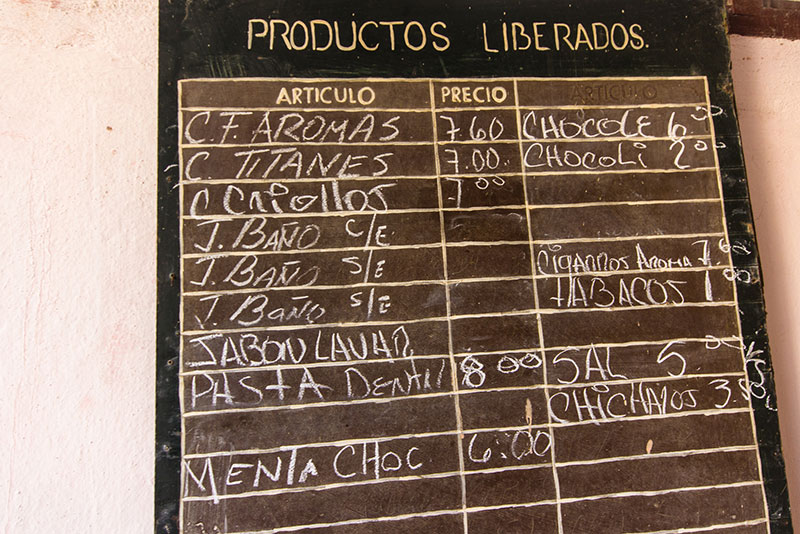 PRODUCTOS LIBERADOS.
ARTICULO PRECIO ARTICULO
C.F. AROMAS 7.60 CHOCOLE 6.00
C. TITANES 7.00. CHOCOLI 2.00
C CRIOLLOS 7.00
J. BAÑO C/E
J. BAÑO S/E CIGARROS AROMA 7.60
J. BAÑO S/E TABACOS 1.00
JABON LAVAR
PASTA DENTAL 8.00 SAL 5.00
CHICHAROS 3.50
MENTA CHOC 6:00